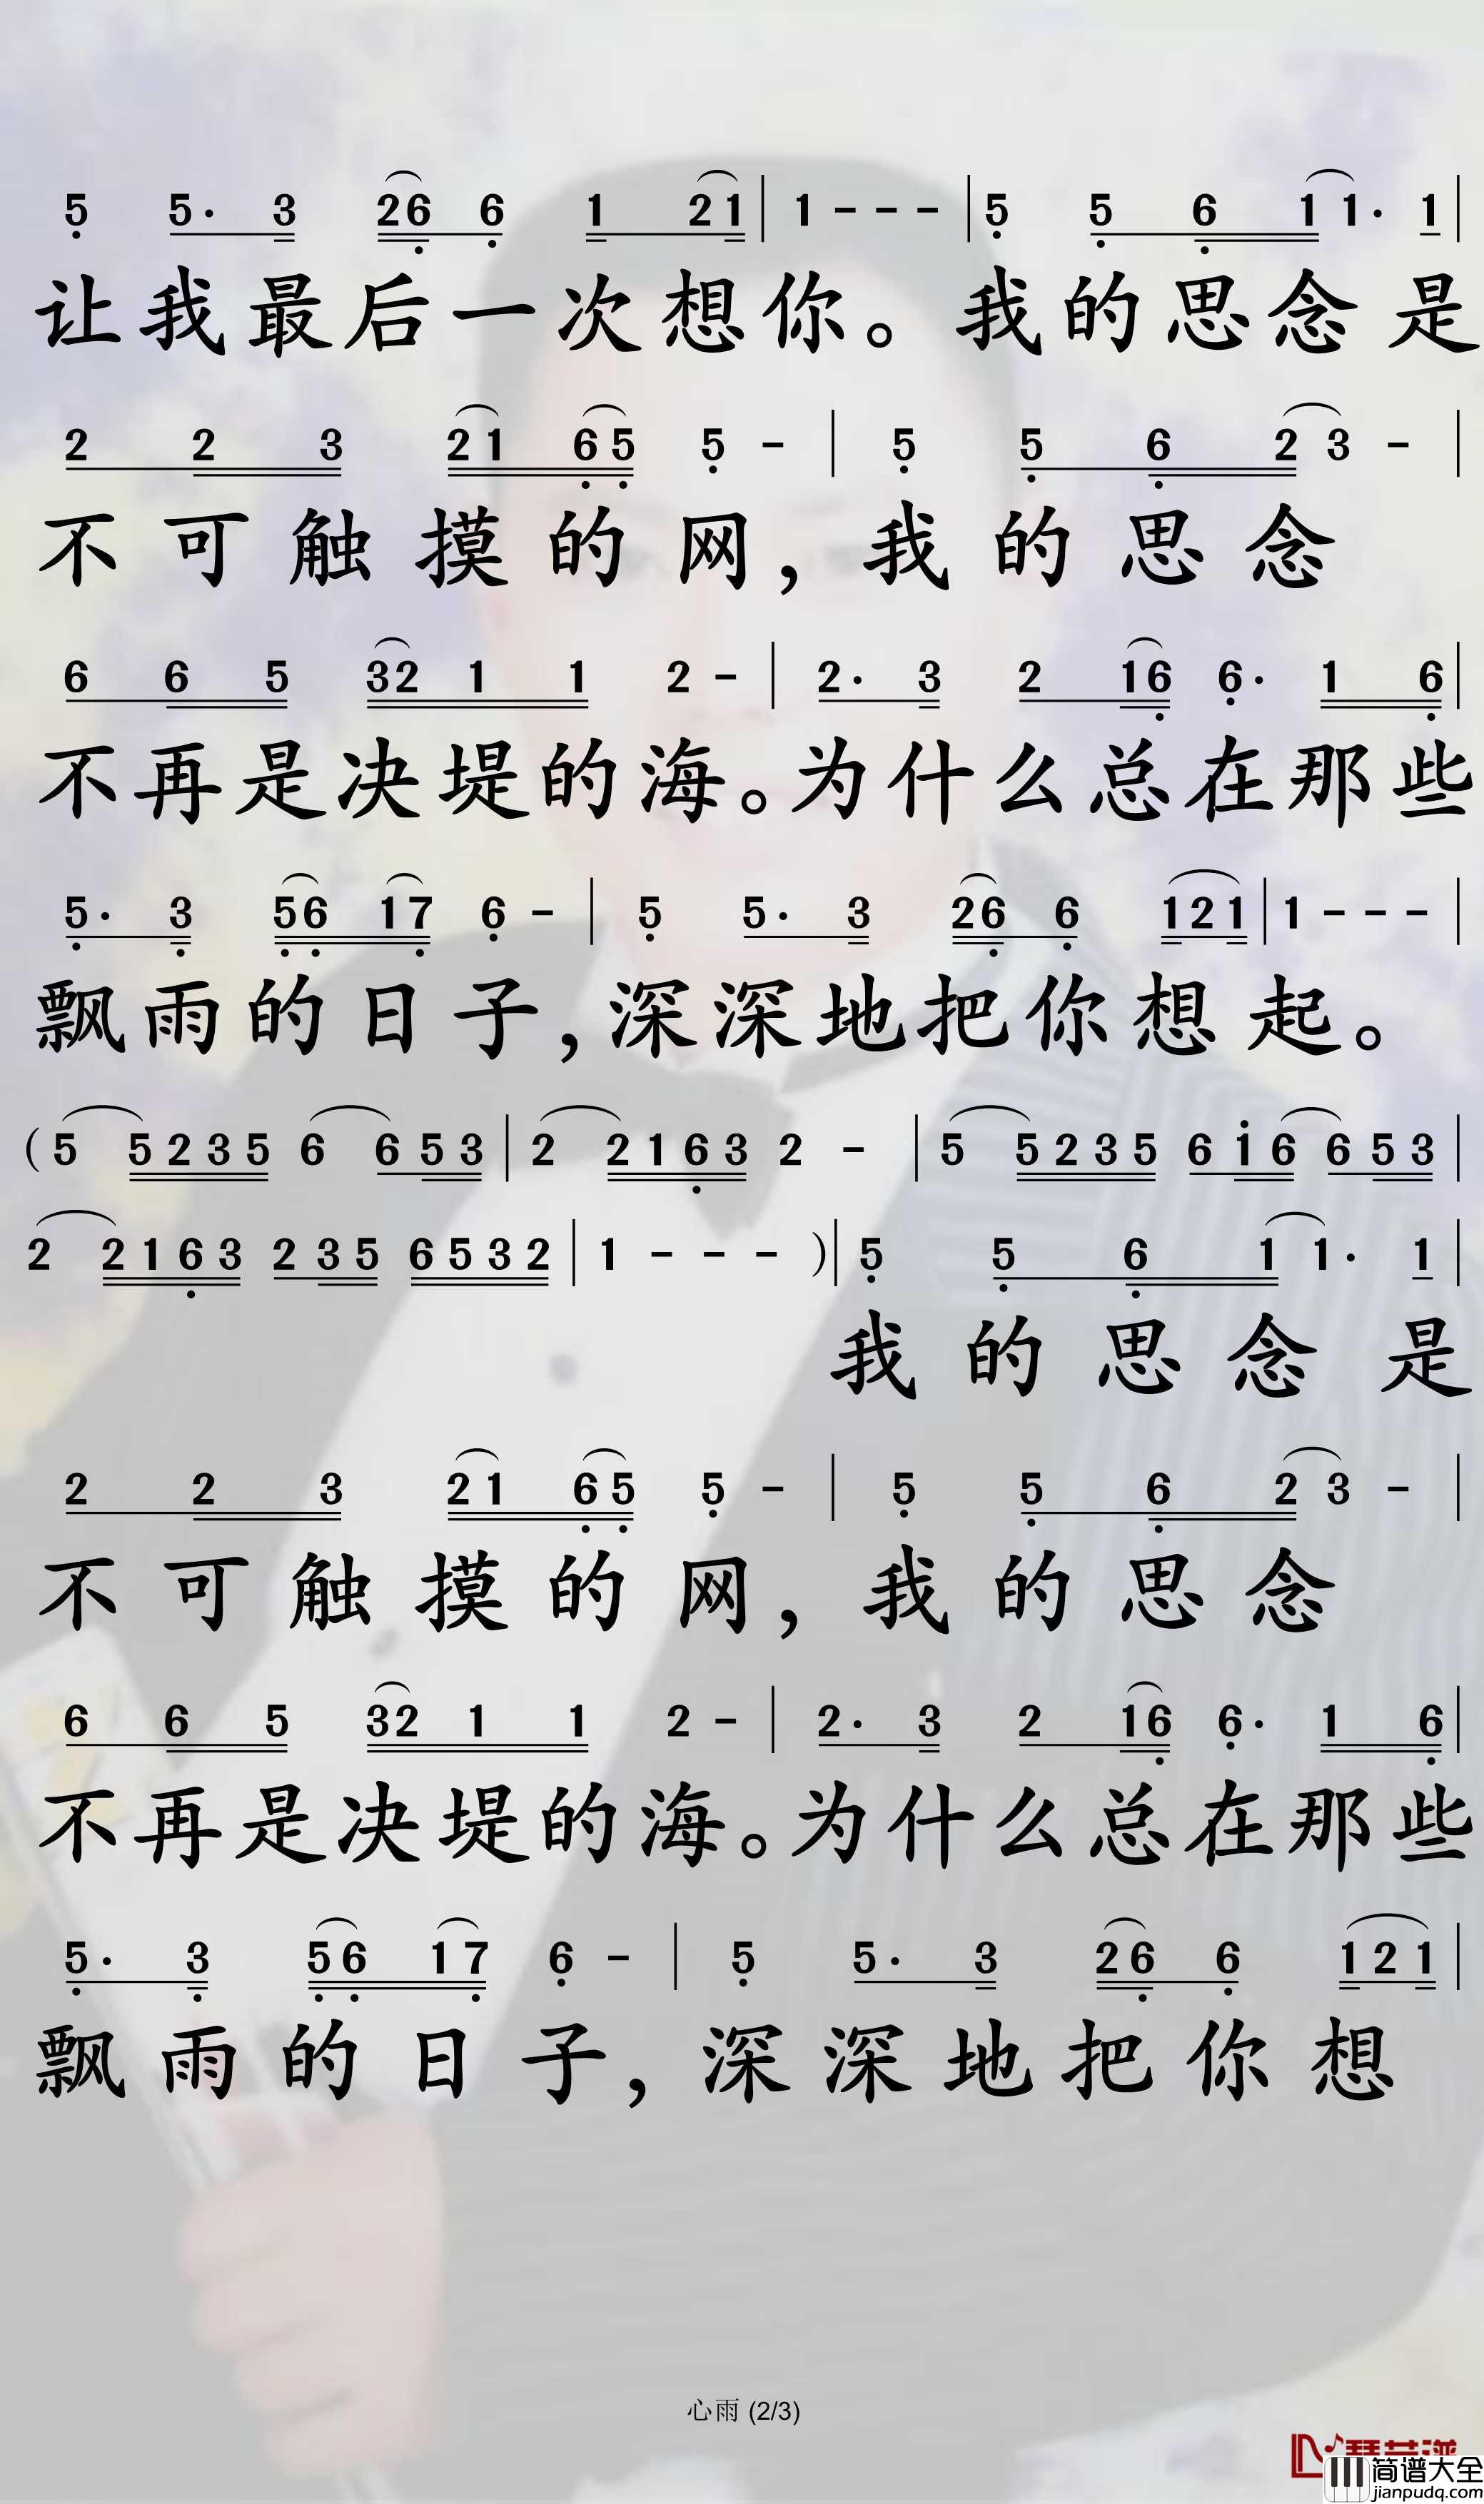 5 5· 3 26 6 1 21 | 1 - - - | 5 5 6 1 1· 1 |
让我最后一次想你。我的思念是
2 2 3 21 65 5 - | 5 5 6 2 3 - |
不可触摸的网，我的思念
6 6 5 32 1 1 2 - | 2· 3 2 16 6· 1 6 |
不再是决堤的海。为什么总在那些
5· 3 56 17 6 - | 5 5· 3 26 6 121 | 1 - - - |
飘雨的日子，深深地把你想起。
( 5 5235 6 653 | 2 2163 2 - | 5 5235 6i6 653 |
2 2163 235 6532 | 1 - - - ) | 5 5 6 1 1· 1 |
我的思念是
2 2 3 21 65 5 - | 5 5 6 2 3 - |
不可触摸的网，我的思念
6 6 5 32 1 1 2 - | 2· 3 2 16 6· 1 6 |
不再是决堤的海。为什么总在那些
5· 3 56 17 6 - | 5 5· 3 26 6 121 |
飘雨的日子，深深地把你想
心雨 (2/3)
简谱大全
jianpudq.com